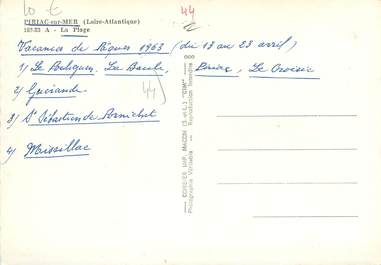 10 €
44
PIRIAC-sur-MER (Loire-Atlantique)
A - La Plage
Vacances de Pâques 1963 (du 13 au 23 avril)
1/ Le Pouliguen, La Baule, Piriac, Le Croisic
2/ Guérande
44
3/ St Sébastien de Pornichet
4/ Missillac
COMBIER IMP. MACON (S.-et-L.) "CIM"
Photographie Véritable - Reproduction Interdite